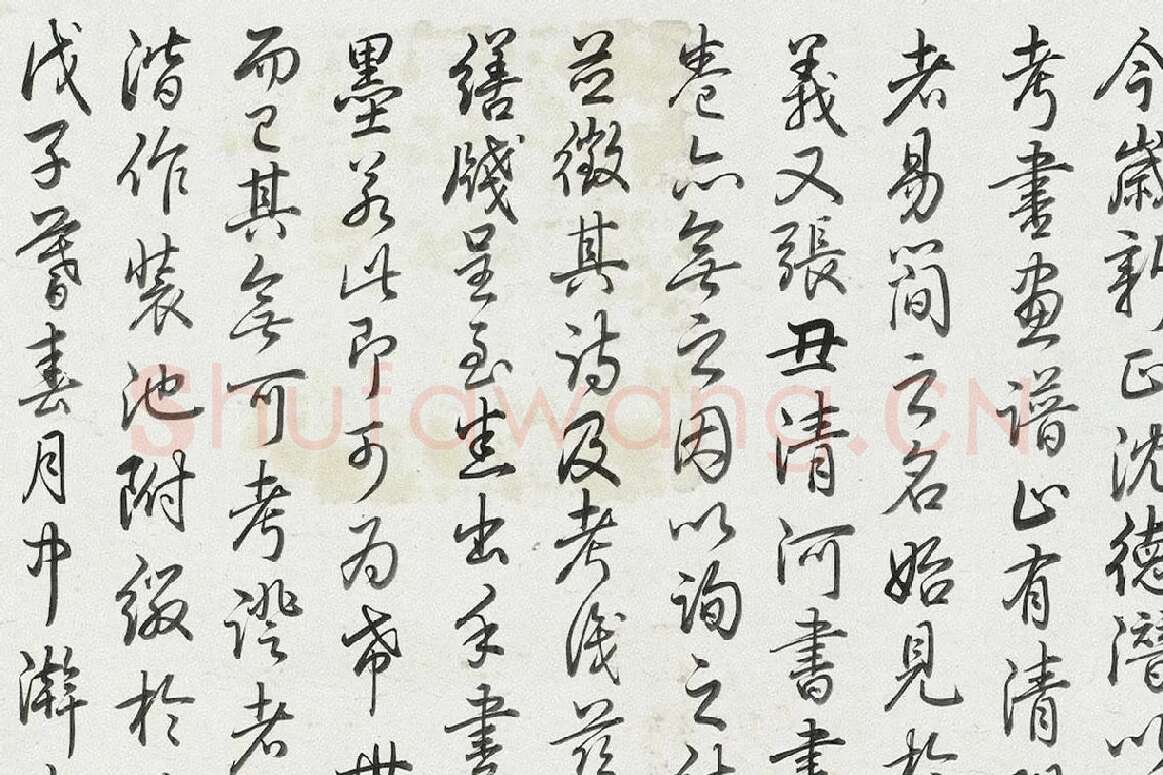 今歲新正沈德潛以
考書畫譜止有清
者易簡之名始見於
義又張丑清河書畫
卷亦無之因以詢之
並徵其詩及考識茲
繕牋呈至業出手書
墨若此即可為希世
而已其無可考證者
潛作裝池附綴於
戊子暮春月中澣
Shufawang.CN